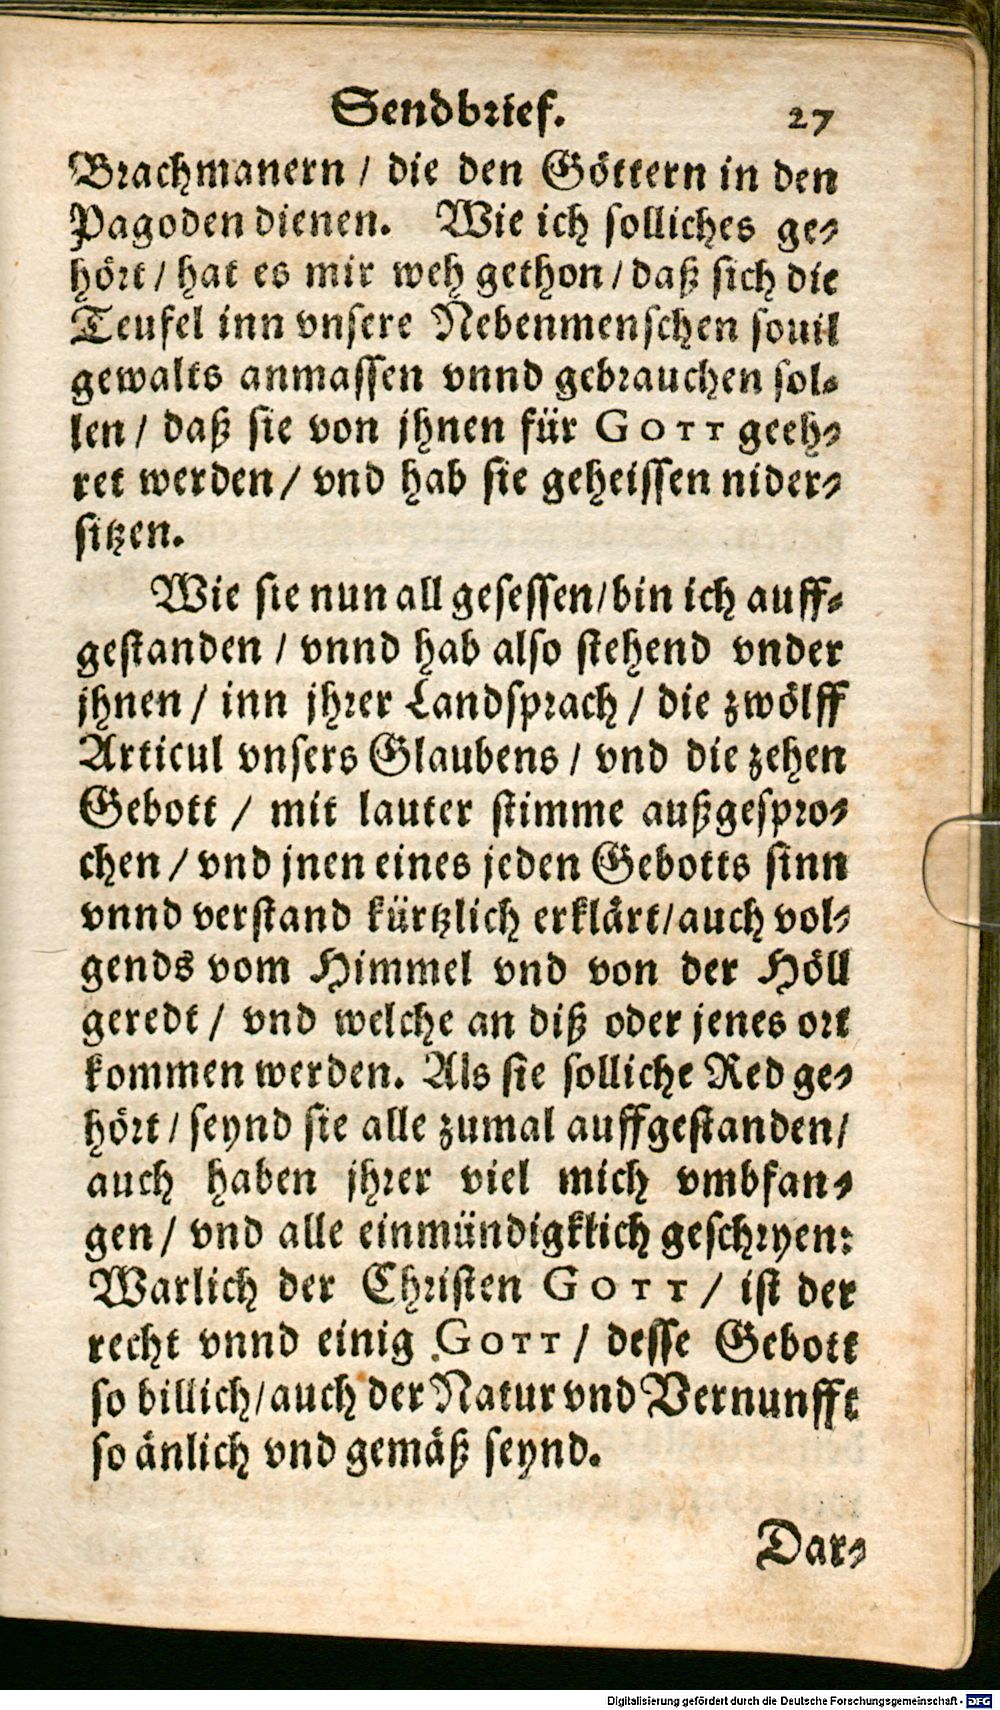 Sendbrief. 27
Brachmanern / die den Göttern in den
Pagoden dienen. Wie ich solliches ge-
hört / hat es mir weh gethon / daß sich die
Teufel inn vnsere Nebenmenschen souil
gewalts anmassen vnnd gebrauchen sol-
len / daß sie von jhnen für GOTT geeh-
ret werden / vnd hab sie geheissen nider-
sitzen.
Wie sie nun all gesessen / bin ich auff-
gestanden / vnnd hab also stehend vnder
jhnen / inn jhrer Landsprach / die zwölff
Articul vnsers Glaubens / vnd die zehen
Gebott / mit lauter stimme außgespro-
chen / vnd jnen eines jeden Gebotts sinn
vnnd verstand kürtzlich erklärt / auch vol-
gends vom Himmel vnd von der Höll
geredt / vnd welche an diß oder jenes ort
kommen werden. Als sie solliche Red ge-
hört / seynd sie alle zumal auffgestanden /
auch haben jhrer viel mich vmbfan-
gen / vnd alle einmündigklich geschryen:
Warlich der Christen GOTT / ist der
recht vnnd einig GOTT / desse Gebott
so billich / auch der Natur vnd Vernunfft
so änlich vnd gemäß seynd.
Dar-
Digitalisierung gefördert durch die Deutsche Forschungsgemeinschaft - DFG